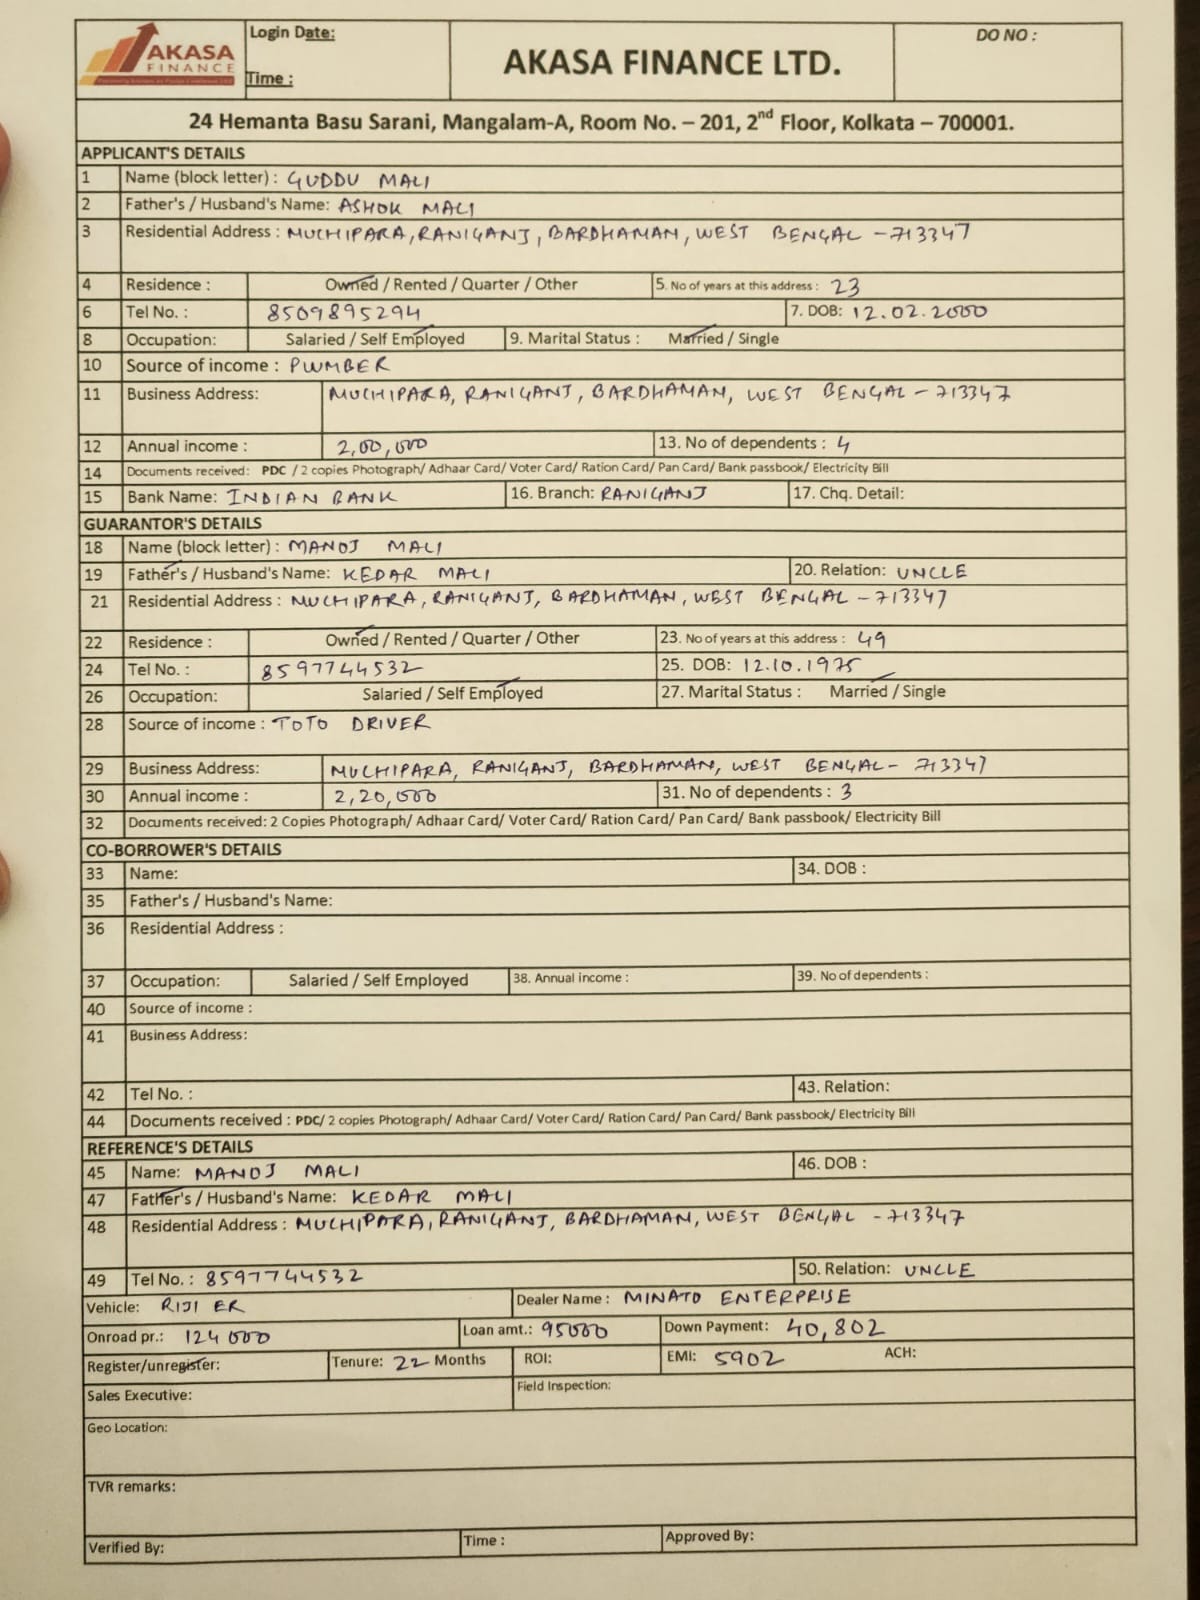 AKASA
FINANCE
Login Date:
Time :
AKASA FINANCE LTD.
DO NO :
24 Hemanta Basu Sarani, Mangalam-A, Room No. – 201, 2nd Floor, Kolkata – 700001.
APPLICANT'S DETAILS
1 Name (block letter) : GUDDU MALI
2 Father's / Husband's Name: ASHOK MALI
3 Residential Address : MUCHIPARA, RANIGANJ, BARDHAMAN, WEST BENGAL - 713347
4 Residence : Owned / Rented / Quarter / Other 5. No of years at this address : 23
6 Tel No. : 8509895294 7. DOB: 12.02.2000
8 Occupation: Salaried / Self Employed 9. Marital Status : Married / Single
10 Source of income : PLUMBER
11 Business Address: MUCHIPARA, RANIGANJ, BARDHAMAN, WEST BENGAL - 713347
12 Annual income : 2,00,000 13. No of dependents : 4
14 Documents received: PDC / 2 copies Photograph/ Adhaar Card/ Voter Card/ Ration Card/ Pan Card/ Bank passbook/ Electricity Bill
15 Bank Name: INDIAN BANK 16. Branch: RANIGANJ 17. Chq. Detail:
GUARANTOR'S DETAILS
18 Name (block letter) : MANOJ MALI
19 Father's / Husband's Name: KEDAR MALI 20. Relation: UNCLE
21 Residential Address : MUCHIPARA, RANIGANJ, BARDHAMAN, WEST BENGAL - 713347
22 Residence : Owned / Rented / Quarter / Other 23. No of years at this address : 49
24 Tel No. : 8597744532 25. DOB: 12.10.1975
26 Occupation: Salaried / Self Employed 27. Marital Status : Married / Single
28 Source of income : TOTO DRIVER
29 Business Address: MUCHIPARA, RANIGANJ, BARDHAMAN, WEST BENGAL - 713347
30 Annual income : 2,20,000 31. No of dependents : 3
32 Documents received: 2 Copies Photograph/ Adhaar Card/ Voter Card/ Ration Card/ Pan Card/ Bank passbook/ Electricity Bill
CO-BORROWER'S DETAILS
33 Name: 34. DOB :
35 Father's / Husband's Name:
36 Residential Address :
37 Occupation: Salaried / Self Employed 38. Annual income : 39. No of dependents :
40 Source of income :
41 Business Address:
42 Tel No. : 43. Relation:
44 Documents received : PDC/ 2 copies Photograph/ Adhaar Card/ Voter Card/ Ration Card/ Pan Card/ Bank passbook/ Electricity Bill
REFERENCE'S DETAILS
45 Name: MANOJ MALI 46. DOB :
47 Father's / Husband's Name: KEDAR MALI
48 Residential Address : MUCHIPARA, RANIGANJ, BARDHAMAN, WEST BENGAL - 713347
49 Tel No. : 8597744532 50. Relation: UNCLE
Vehicle: RIJI ER Dealer Name : MINATO ENTERPRISE
Onroad pr.: 124000 Loan amt.: 95000 Down Payment: 40,802
Register/unregister: Tenure: 22 Months ROI: EMI: 5902 ACH:
Sales Executive: Field Inspection:
Geo Location:
TVR remarks:
Verified By: Time : Approved By: